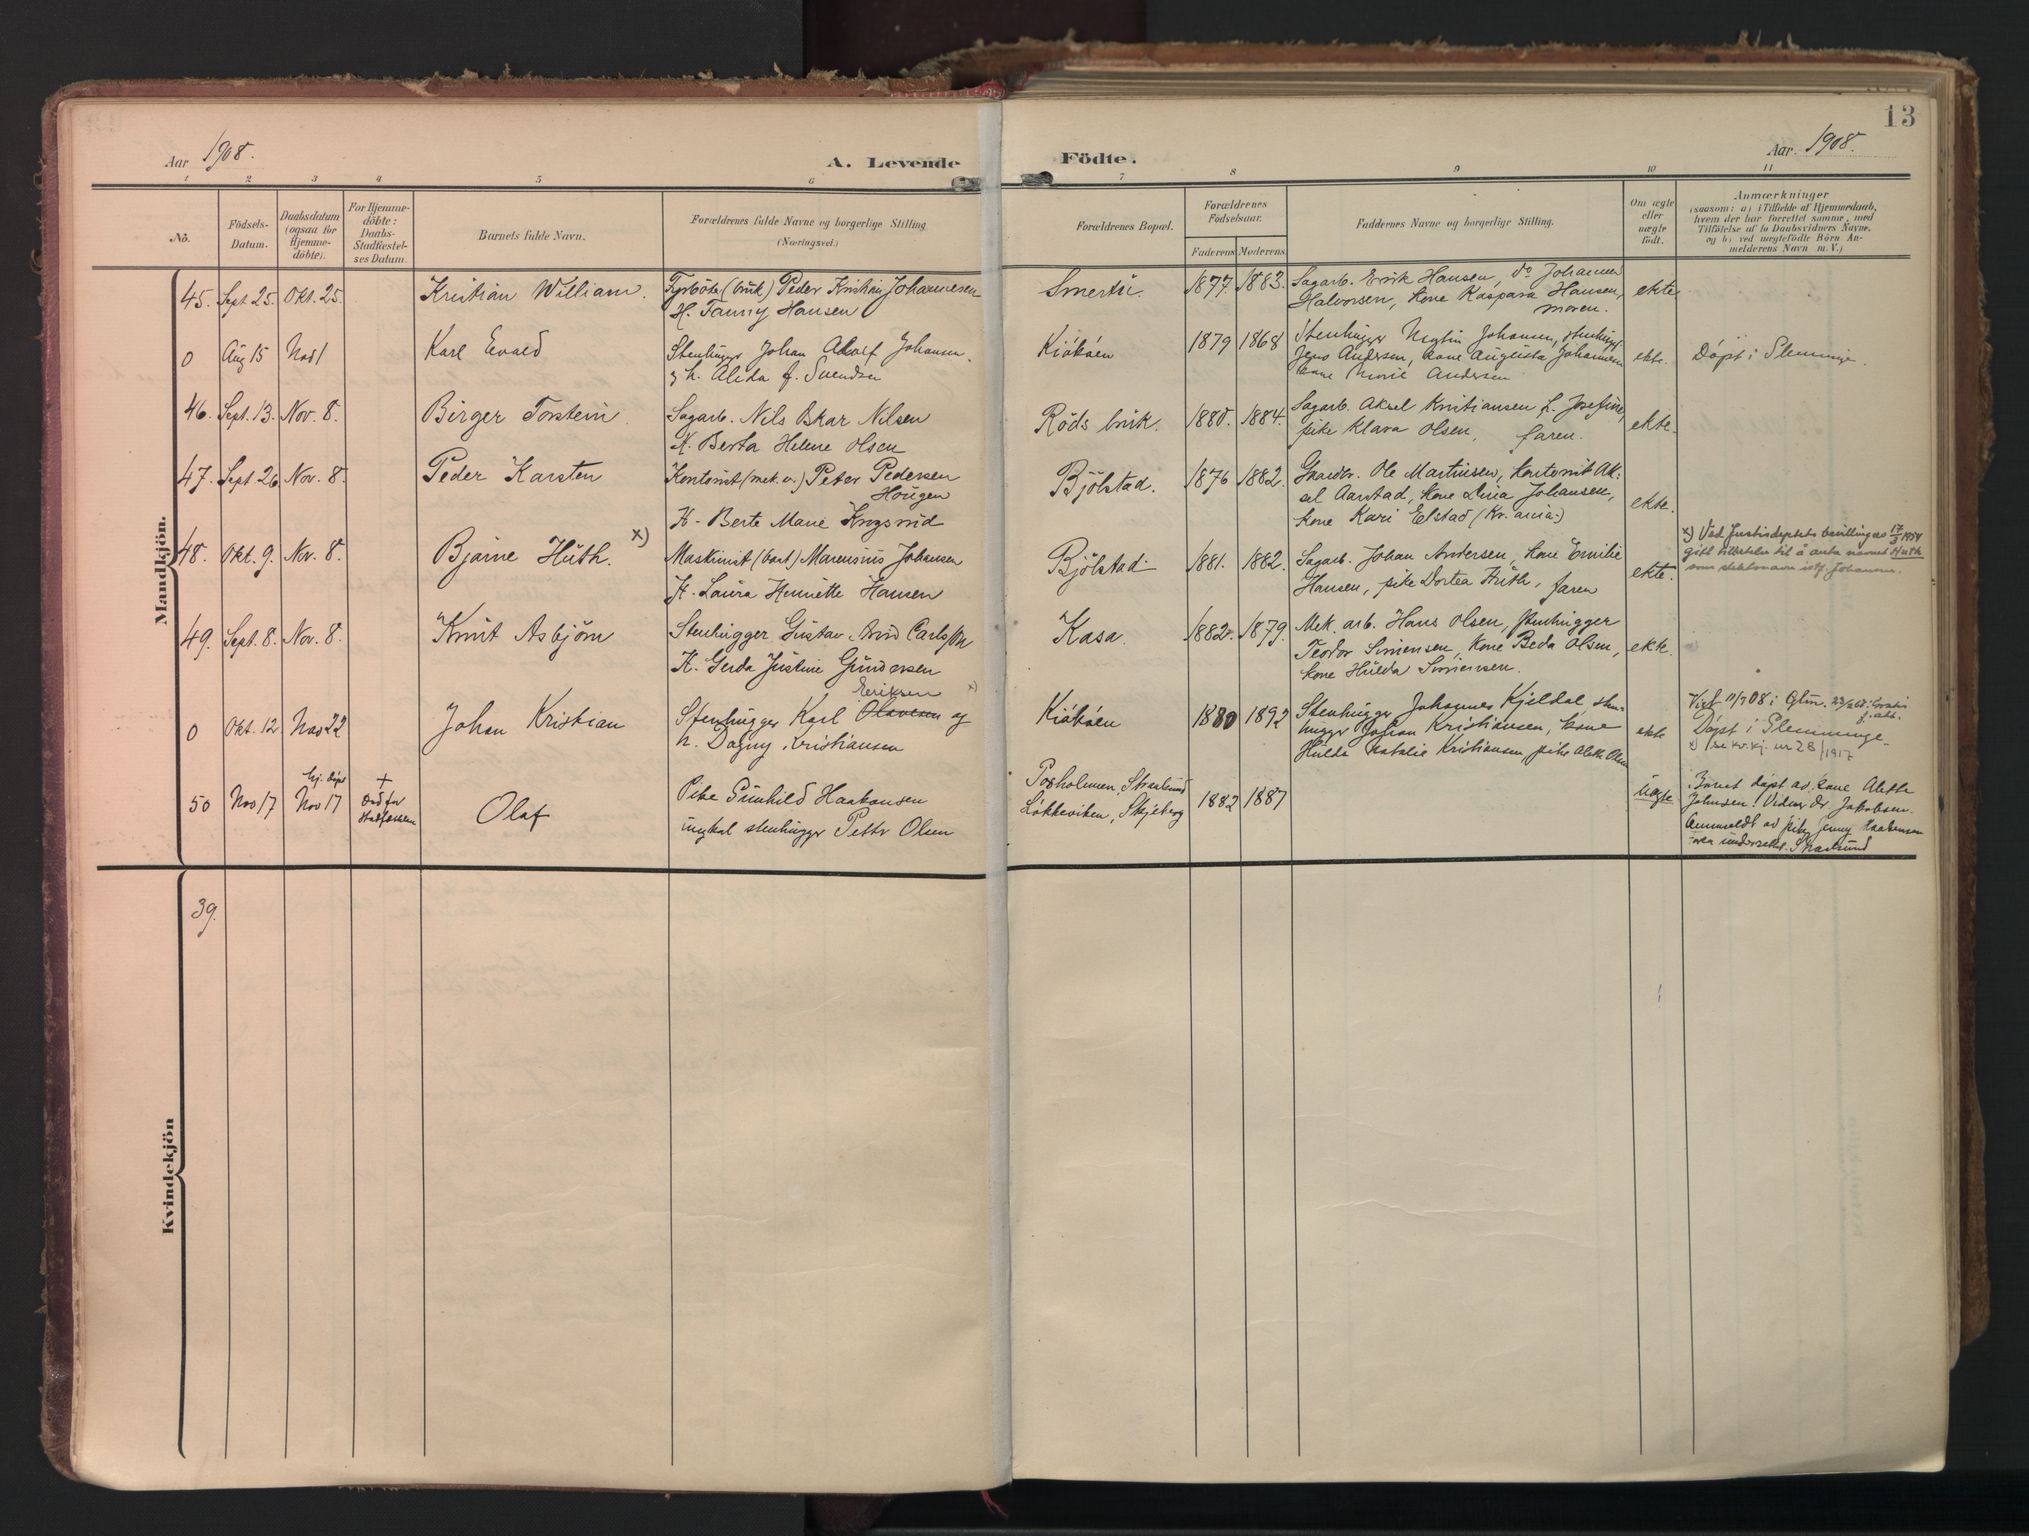 13
Aar 1908.
A. Levende Födte.
Aar 1908.
1 2 3 4 5 6 7 8 9 10 11
No.
Födsels-Datum.
Daabsdatum (ogsaa for Hjemme-döbte).
For Hjemme-döbte: Daabs-Stadfæstel-ses Datum.
Barnets fulde Navn.
Forældrenes fulde Navne og borgerlige Stilling.
(Næringsvei.)
Forældrenes Bopæl.
Forældrenes Födselsaar.
Faderens Moderens
Faddernes Navne og borgerlige Stilling.
Om ægte eller uægte födt.
Anmærkninger
(saasom: a) i Tilfælde af Hjemmedaab, hvem der har forrettet samme, med Tilföielse af to Daabsvidners Navne, og b) ved uægtefödte Börn Anmelderens Navn m. V.)
Mandkjön.
45. Sept. 25. Okt. 25. Kristian William. Fyrböter (bruk) Peder Kristian Johannesen
H. Fanny Hansen
Smertu. 1877. 1883. Sagarb. Erik Hansen, do Johannes
Halvorsen, kone Kaspara Hansen,
moren. ekte
0 Aug 15 Nov 1 Karl Evald Stenhugger Johan Adolf Johansen
og h. Alida f. Svendsen
Kiököen 1879 1868 Stenhugger Johansen, stenhugger
Jens Andersen, kone Augusta Johannesen
kone Marie Andersen ekte. Döpt i Glemminge.
46. Sept. 13. Nov. 8. Birger Torstein. Sagarb. Nils Oskar Nilsen
H. Berta Helene Olsen
Röds bruk. 1880. 1884. Sagarb. Aksel Kristiansen h. Josefine,
pike Klara Olsen, faren. ekte.
47. Sept 26. Nov. 8. Peder Karsten Kontorist (mek. v.) Peter Pedersen
Hougen
H. Berte Marie Kngsrud
Bjölstad. 1876 1882. Gaardbr. Ole Martinsen, kontorist Ak-
sel Aarstad, kone Lina Johansen,
kone Kari Elstad (Kr.ania.) ekte.
48. Okt. 9. Nov. 8. Bjarne Huth. x) Maskinist (baat) Marensius Johansen
H. Laura Henriette Hansen
Bjölstad. 1881. 1882. Sagarb. Johan Andersen, kone Emilie
Hansen, pike Dortea Huth, faren ekte.
x) Ved Justisdeptets bevilling av 17/3 1954
gitt tillatelse til å anta navnet Huth
som slektsnavn istf. Johansen.
49. Sept. 8. Nov. 8. Knut Asbjörn Stenhugger Gustav Arvid Carlsson
H. Gerda Justine Gundersen
Kasa. 1882. 1879. Mek. arb. Hans Olsen, stenhugger
Teodor Simensen, kone Beda Olsen,
kone Hulda Simensen. ekte.
0 Okt. 12. Nov 22 Johan Kristian Stenhugger Karl Olavesen og
Eriksen x)
h. Dagny Kristiansen
Kiököen 1880 1892 Stenhugger Johannes Kjeldal, sten-
hugger Johan Kristiansen, kone
Hulda Natalie Kristiansen, pike Aleth Olsen ekte
Döpt i Glemminge.
x) se kv.kj. nr 28/1917
50 Nov 17 hj. döpt
Nov 17 + Olaf Pike Gunhild Haakonsen
ungkal stenhugger Petter Olsen
Stralsund
Lökkeviken, Skjeberg 1882 1887 uegte
Barnet döpt av kone Alethe
Johnsen. Jakobsen.
Anmeldt av pike Jenny Haakonsen
Kvindekjön
39.